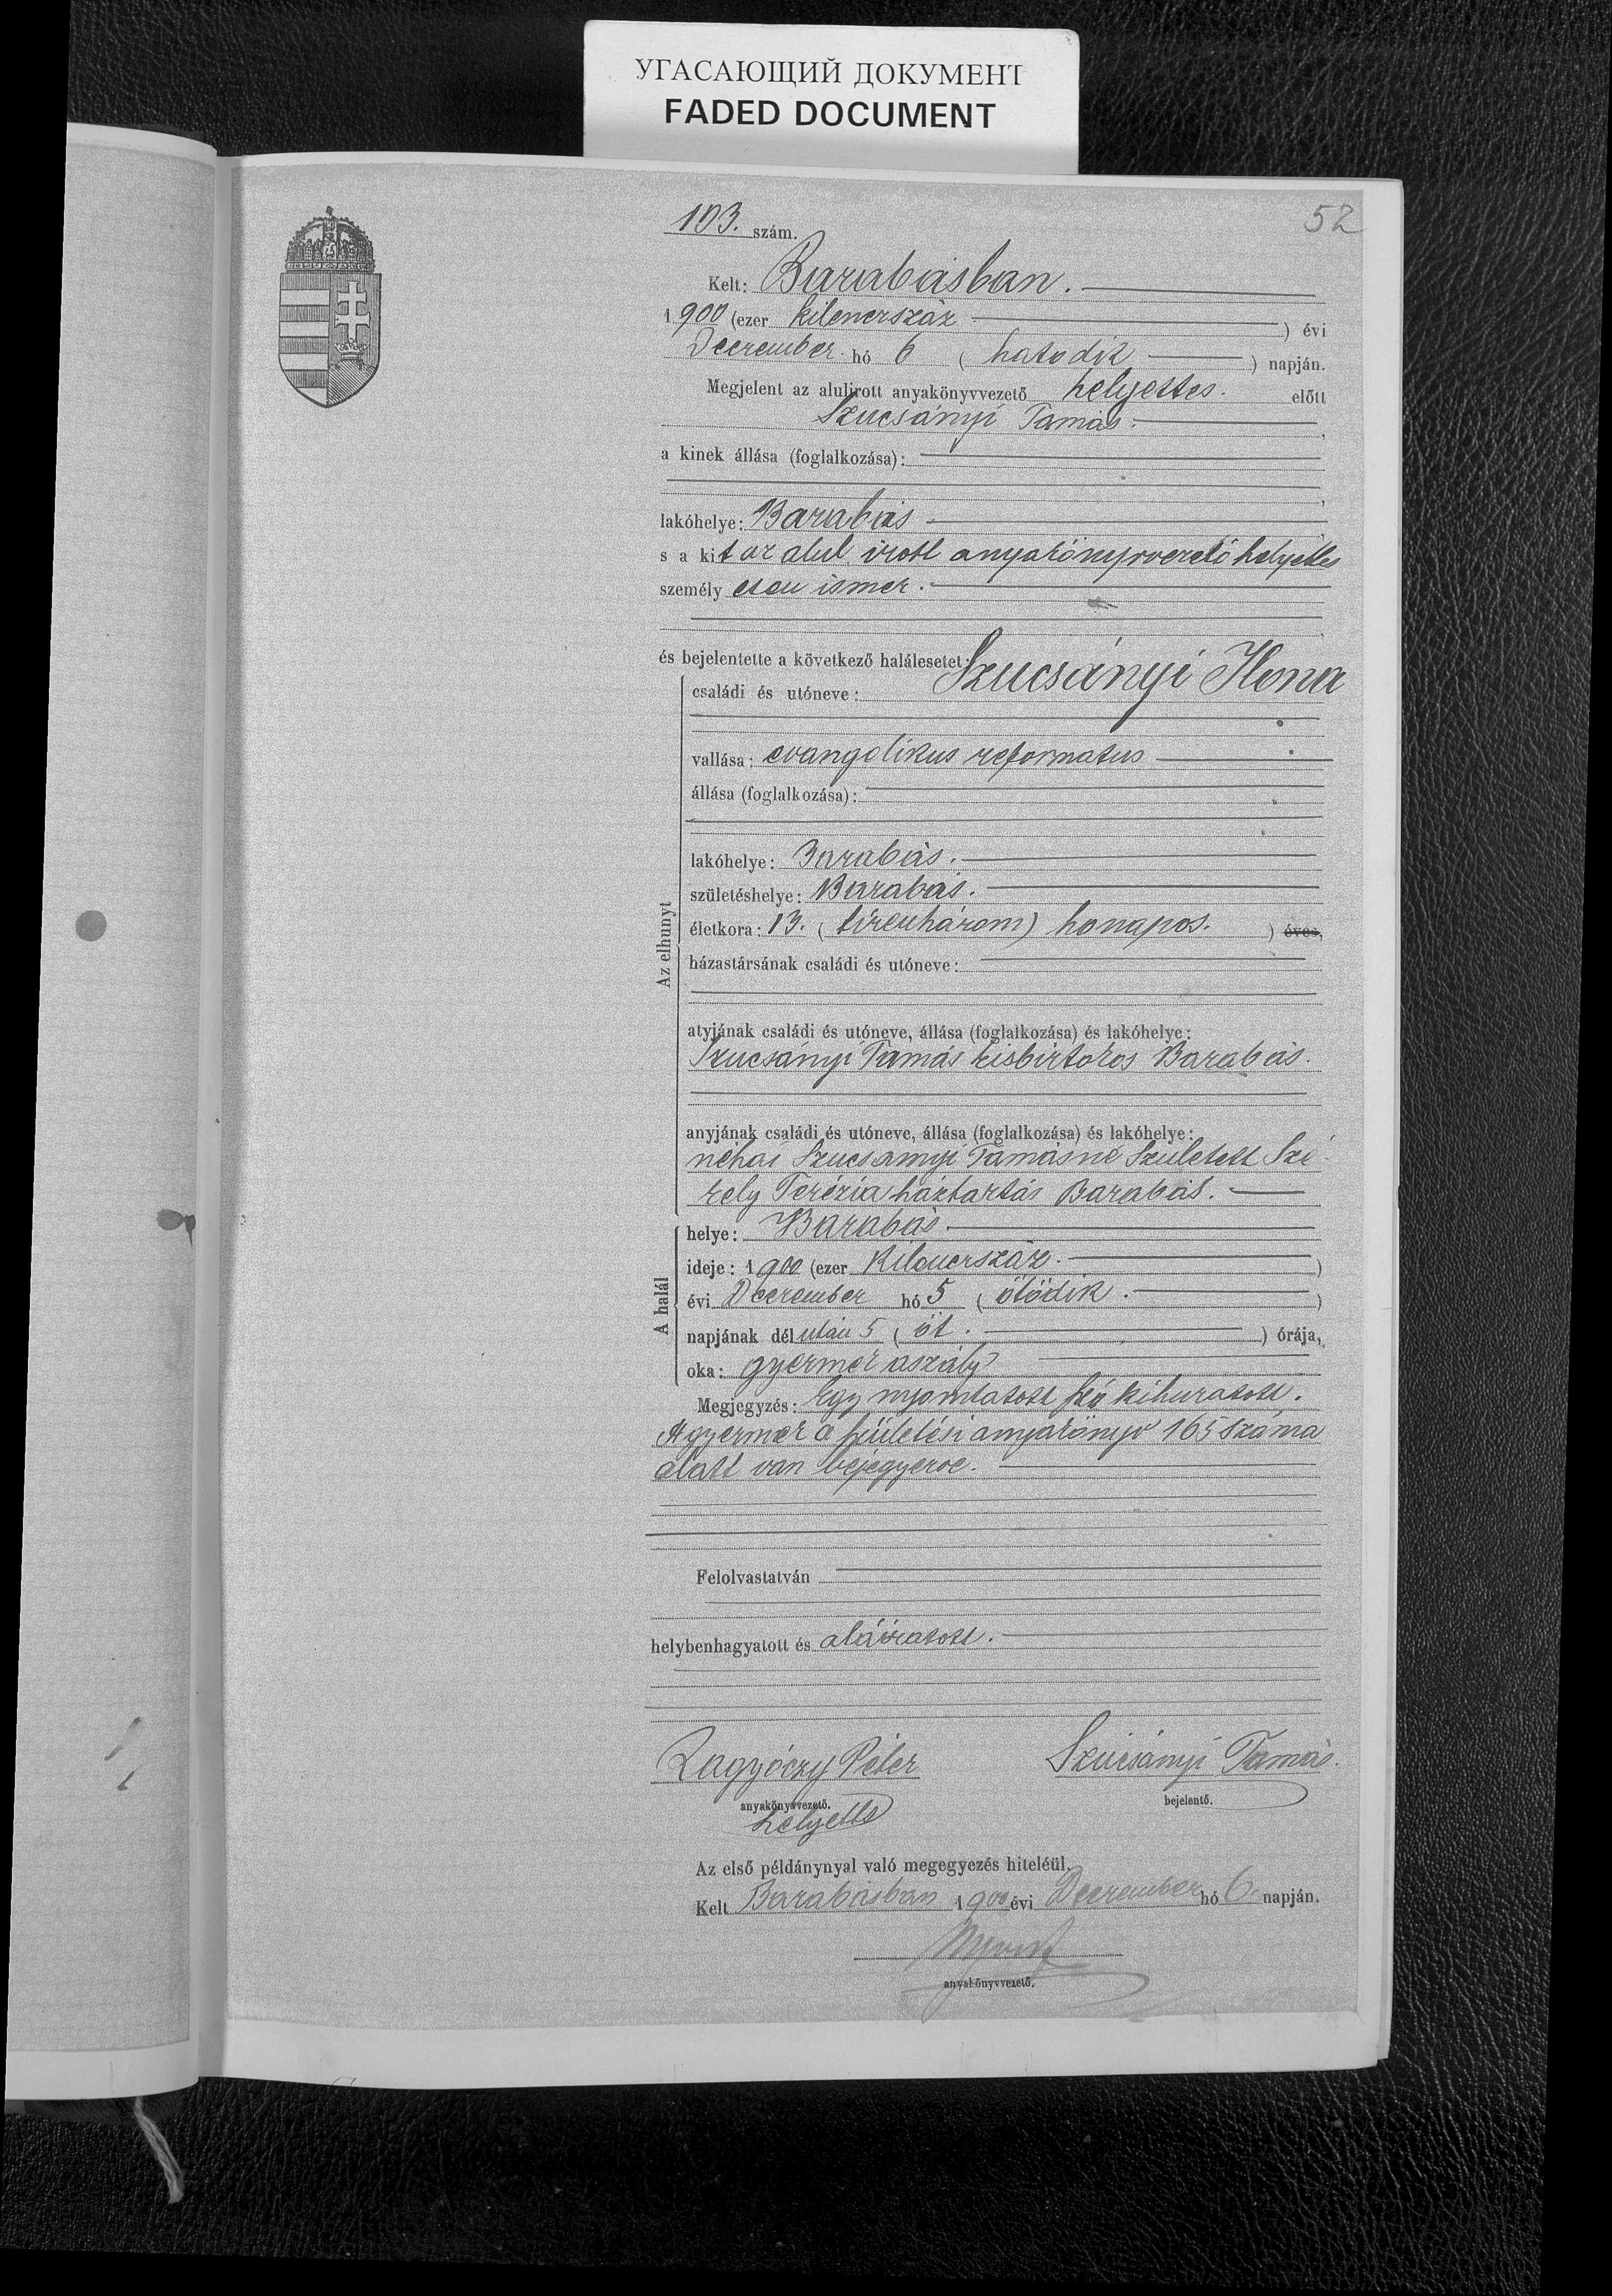 УГАСАЮЩИЙ ДОКУМЕНТ
FADED DOCUMENT
52
103. szám.
Kelt: Barabásban.
1900 (ezer kilencrszáz ) évi
Decrember hó 6 ( hatodik ) napján.
Megjelent az alulirott anyakönyvvezető helyettes. előtt
Szucsányi Tamás.
a kinek állása (foglalkozása):
lakóhelye: Barabás
s a kit az alul irott anyakönyvvezető helyettes
személy esen ismer.
és bejelentette a következő halálesetet:
Az elhunyt
családi és utóneve: Szucsányi Ilona
vallása: evangolikus reformatus
állása (foglalkozása):
lakóhelye: Barabás.
születéshelye: Barabás.
életkora: 13. ( tizenhárom) honapos. ) éves,
házastársának családi és utóneve:
atyjának családi és utóneve, állása (foglalkozása) és lakóhelye:
Szucsányi Tamás kisbirtokos Barabás.
anyjának családi és utóneve, állása (foglalkozása) és lakóhelye:
néhai Szucsányi Tamásné Született Szé
kely Terézia háztartás Barabás.
A halál
helye: Barabás
ideje: 1900 (ezer Kilencrszáz. )
évi Decrember hó 5 ( ötödik. )
napjának dél után 5 ( öt. ) órája,
oka: gyermek aszály
Megjegyzés: Egy nyomtatott szó kihuzatott.
A gyermek a születési anyakönyv 165 száma
alatt van bejegyezve.
Felolvastatván
helybenhagyatott és aláiratott.
Zagyóczy Péter Szúcsányi Tamás.
anyakönyvvezető. bejelentő.
helyettes
Az első példánynyal való megegyezés hiteléül.
Kelt Barabásban 1900 évi Decrember hó 6. napján.
anyakönyvvezető.